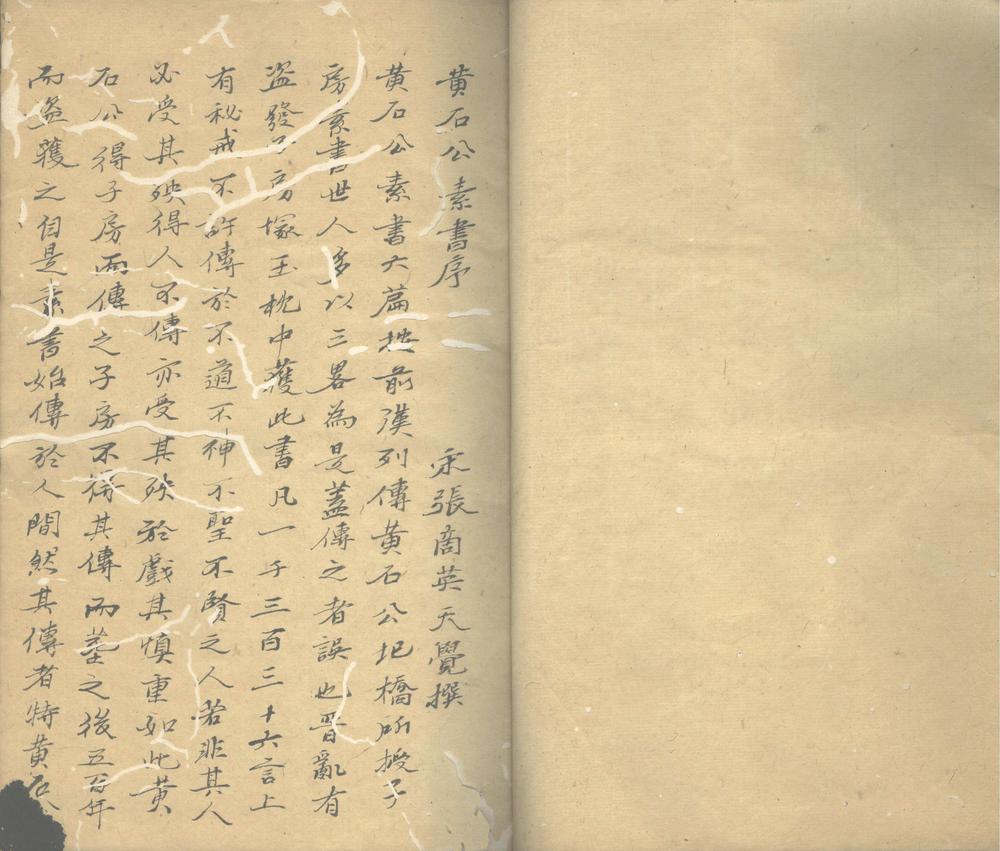 黄石公素書序
宋張商英天覺撰
黄石公素書六篇按前漢列傳黄石公圯橋所授子
房素書世人多以三畧為是蓋傳之者誤也晋亂有
盗發子房塚玉枕中獲此書凡一千三百三十六言上
有秘戒不許傳於不道不神不聖不賢之人若非其人
必受其殃得人不傳亦受其殃於戲其慎重如此黄
石公得子房而傳之子房不得其傳而塟之後五百年
而盗獲之自是素書始傳於人間然其傳者特黄石公